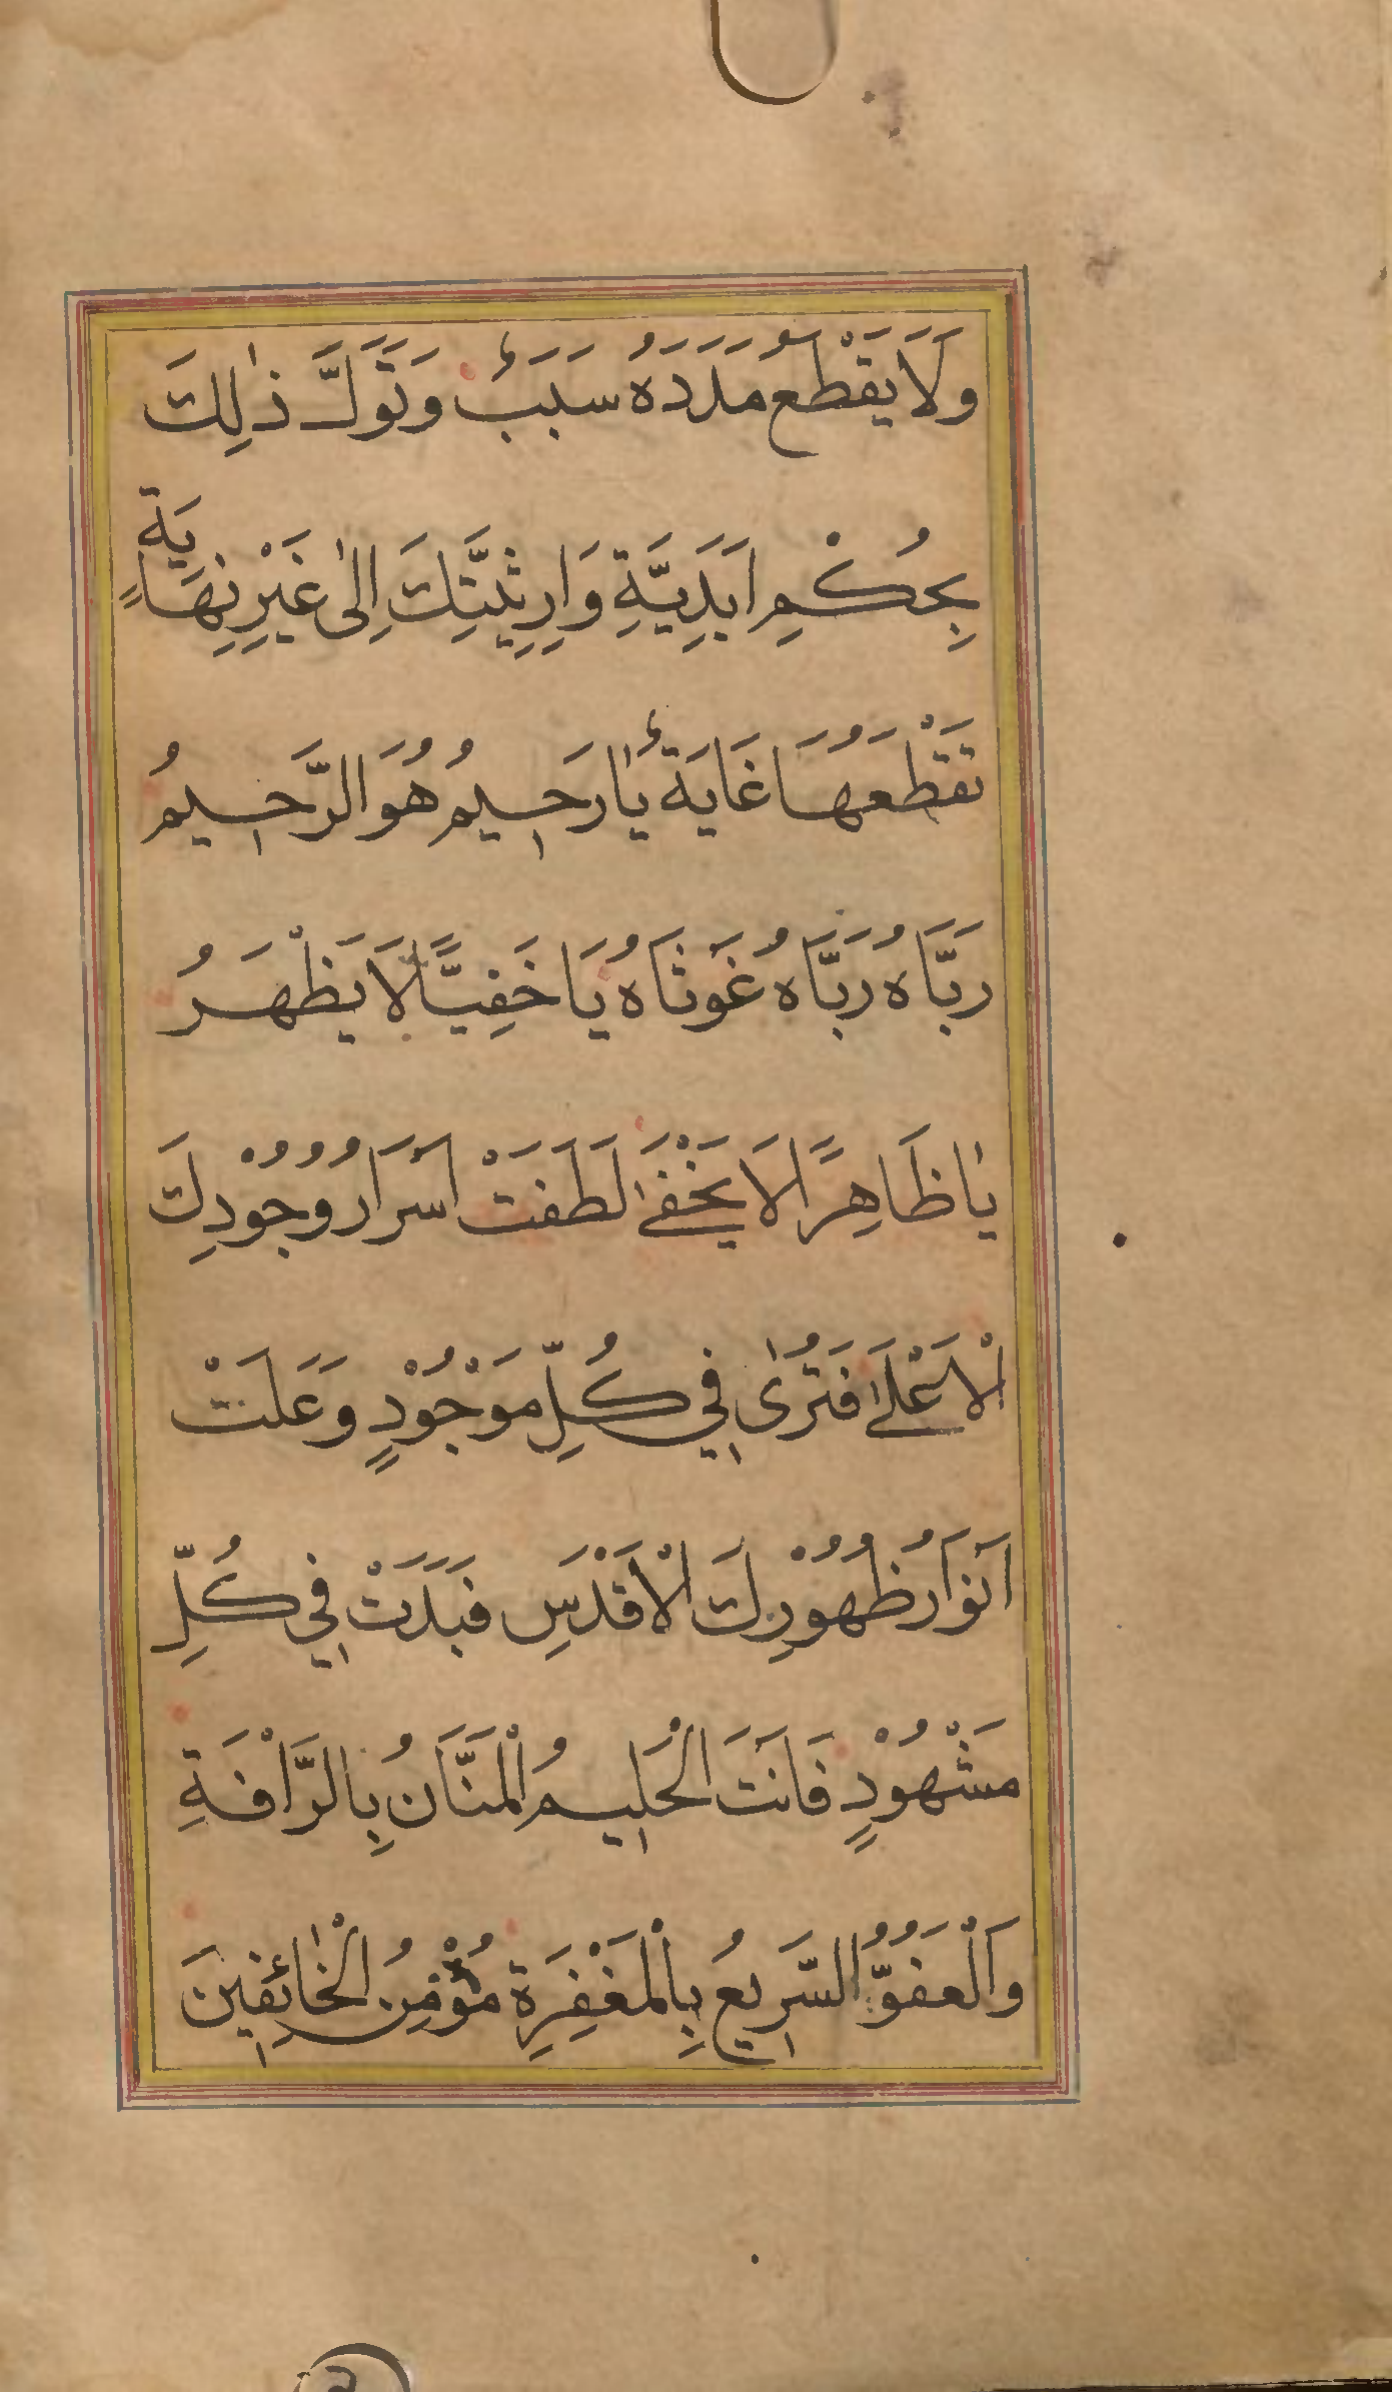 وَلَا يَقْطَعُ مَدَدَهُ سَبَبٌ وَتَوَلَّ ذٰلِكَ
بِحُكْمِ اَبَدِيَّةِ وَارِثِيَّتِكَ اِلٰى غَيْرِ نِهَايَةٍ
تَقْطَعُهَا غَايَةٌ يَارَحِيمُ هُوَ الرَّحِيمُ
رَبَّاهُ رَبَّاهُ غَوْثَاهُ يَا خَفِيًّا لَا يَظْهَرُ
يَا ظَاهِرًا لَا يَخْفٰى لَطَفَتْ اَسْرَارُ وُجُوْدِكَ
الْاَعْلٰى فَتُرٰى فِي كُلِّ مَوْجُوْدٍ وَعَلَتْ
اَنْوَارُ ظُهُوْرِكَ الْاَقْدَسِ فَبَدَتْ فِي كُلِّ
مَشْهُوْدٍ فَاَنْتَ الْحَلِيمُ الْمَنَّانُ بِالرَّأْفَةِ
وَالْعَفُوُّ السَّرِيعُ بِالْمَغْفِرَةِ مُؤْمِنُ الْخَائِفِينَ